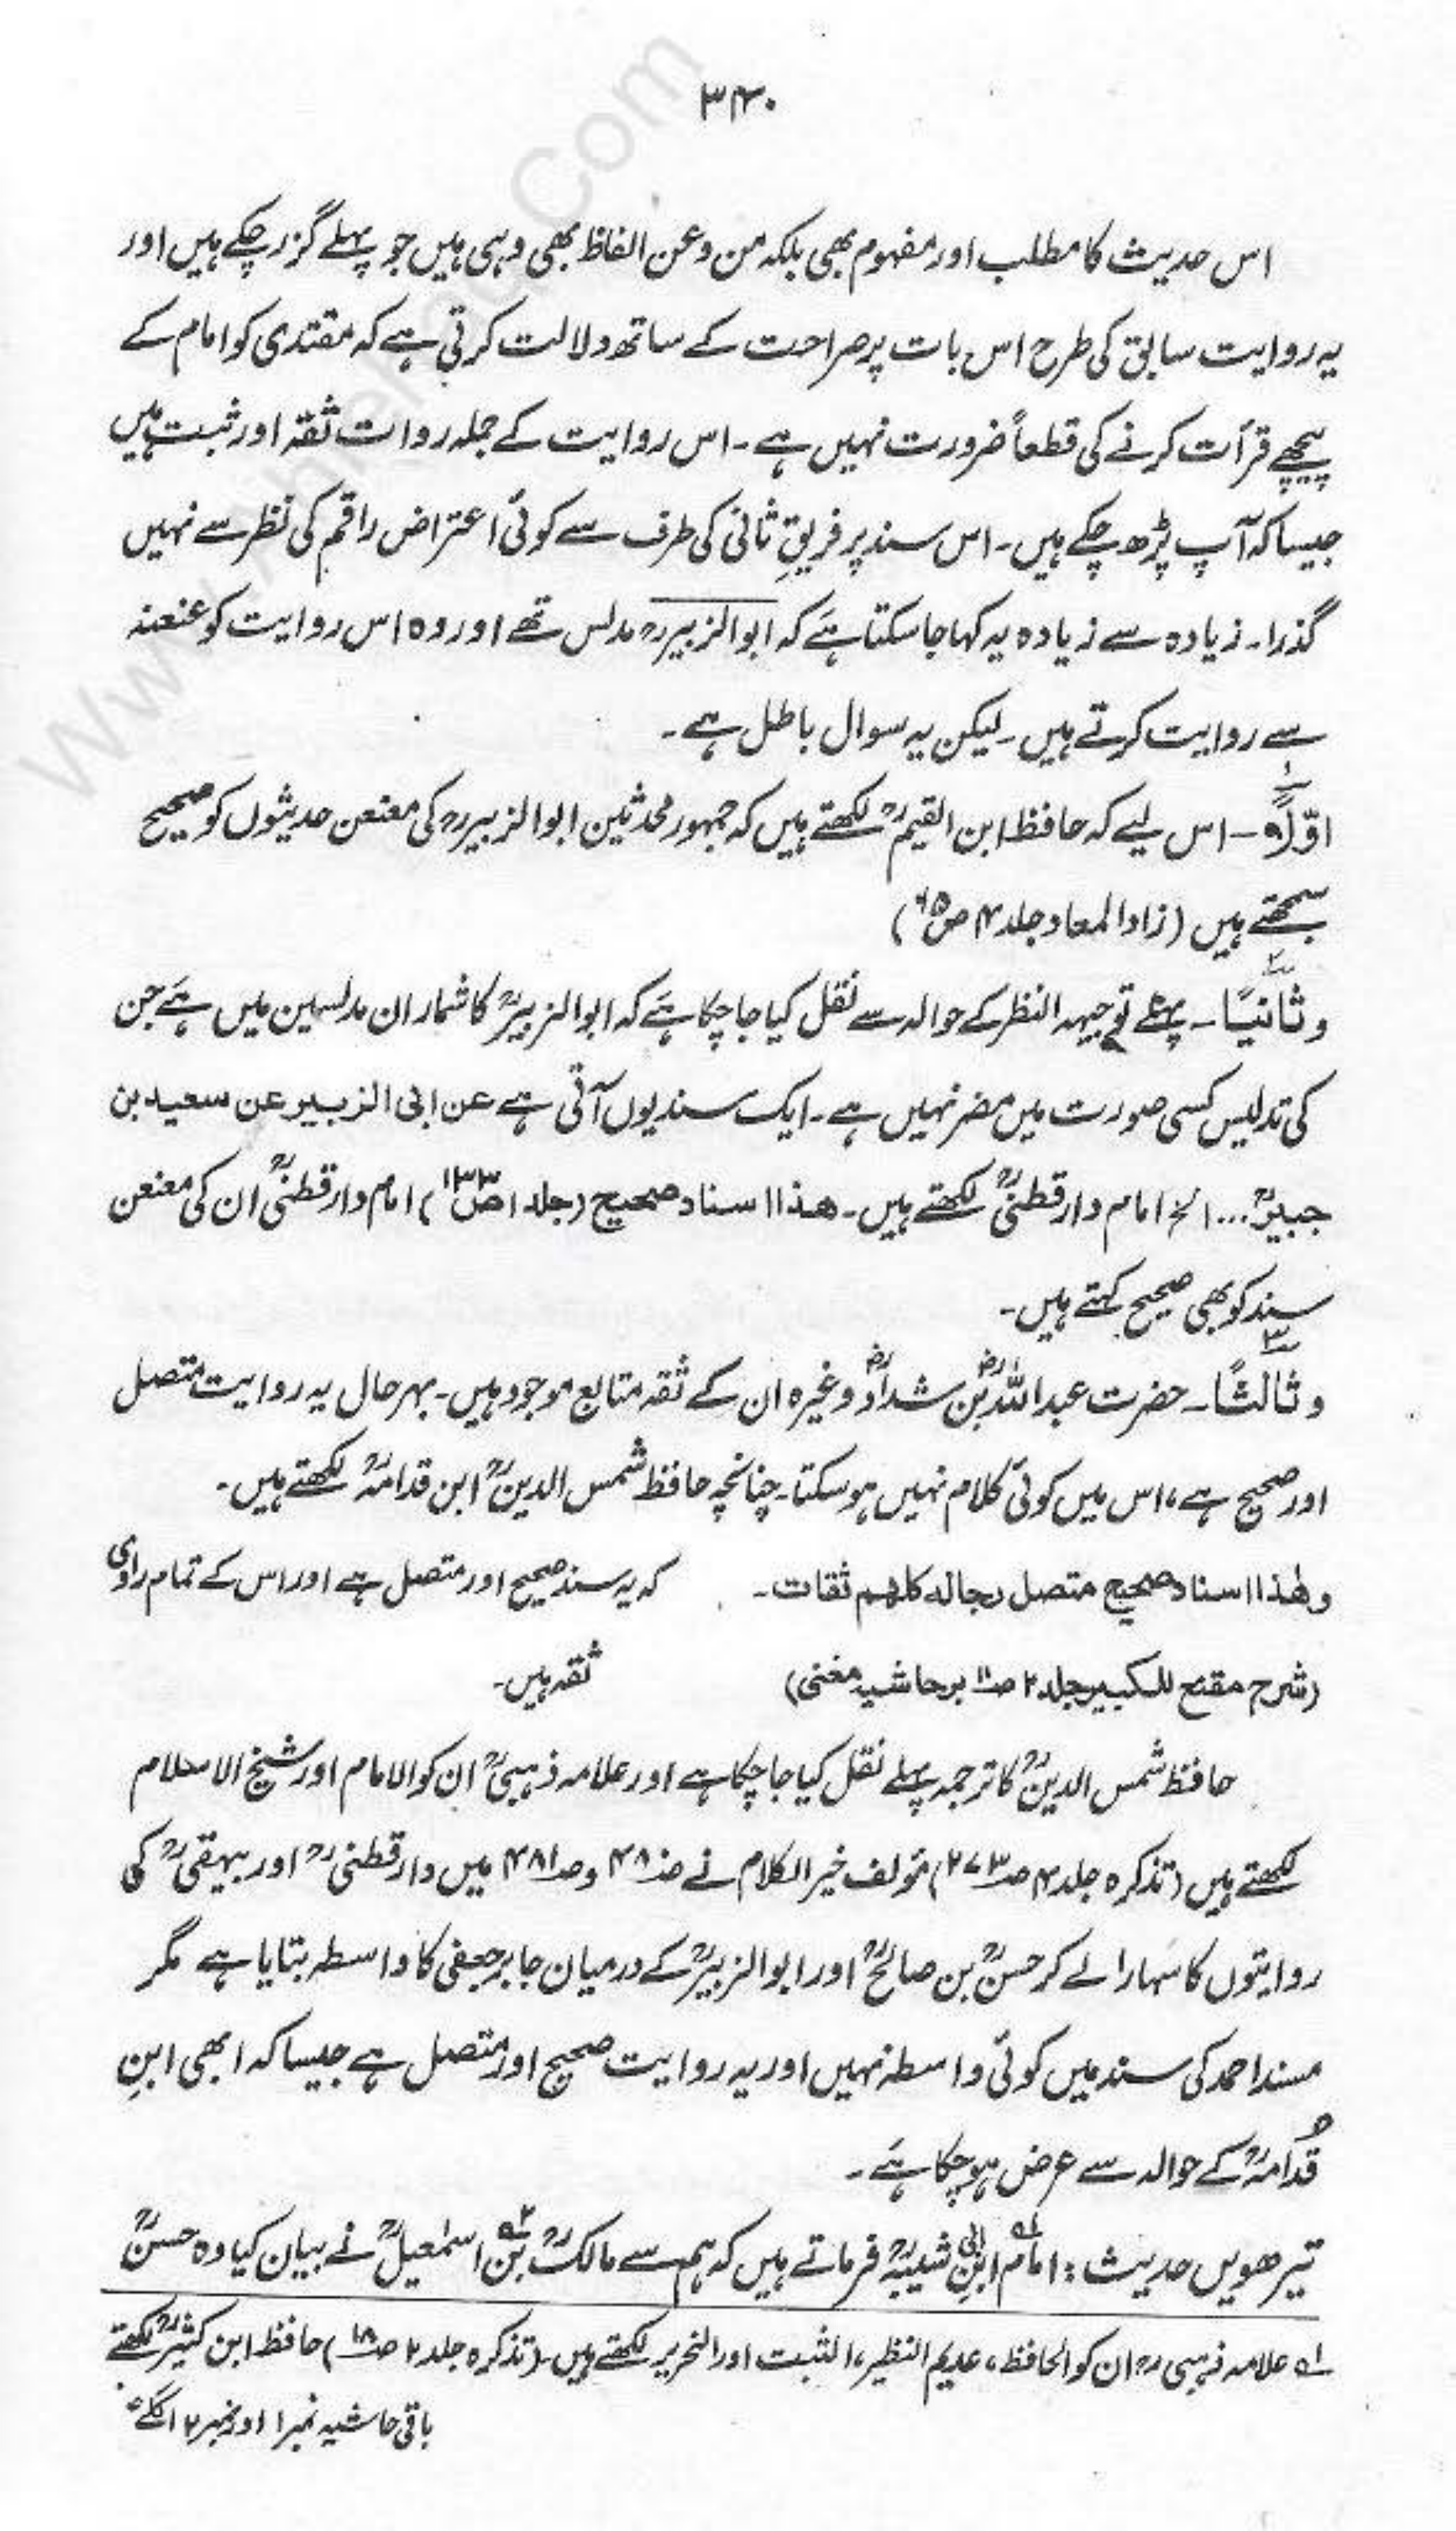 ۳۴۰
اس حدیث کا مطلب اور مفہوم بھی بلکہ من و عن الفاظ بھی وہی ہیں جو پہلے گزر چکے ہیں اور
یہ روایت سابق کی طرح اس بات پر صراحت کے ساتھ دلالت کرتی ہے کہ مقتدی کو امام کے
پیچھے قرأت کرنے کی قطعاً ضرورت نہیں ہے۔ اس روایت کے جملہ روات ثقہ اور ثبت ہیں
جیسا کہ آپ پڑھ چکے ہیں۔ اس سند پر فریقِ ثانی کی طرف سے کوئی اعتراض راقم کی نظر سے نہیں
گذرا۔ زیادہ سے زیادہ یہ کہا جا سکتا ہَے کہ ابوالزبیرؒ مدلس تھے اور وہ اس روایت کو عنعنہ
سے روایت کرتے ہیں۔ لیکن یہ سوال باطل ہے۔
اوّلاً ۱ – اس لیے کہ حافظ ابن القیمؒ لکھتے ہیں کہ جمہور محدثین ابوالزبیرؒ کی معنعن حدیثوں کو صحیح
سمجھتے ہیں (زاد المعاد جلد ۴ ص)
و ثانیًا ۲ ۔ پہلے توجیہہ النظر کے حوالہ سے نقل کیا جا چکا ہَے کہ ابوالزبیرؒ کا شمار ان مدلسین میں ہَے جن
کی تدلیس کسی صورت میں مضر نہیں ہے۔ ایک سند یوں آتی ہے عن ابی الزبیر عن سعید بن
جبیرؒ... الخ امام دارقطنیؒ لکھتے ہیں۔ ھذا اسناد صحیح (جلد ۱ ص۱۳۳) امام دارقطنیؒ ان کی معنعن
سند کو بھی صحیح کہتے ہیں۔
و ثالثًا ۳ ۔ حضرت عبد اللہؓ بن شدادؓ وغیرہ ان کے ثقہ متابع موجود ہیں۔ بہر حال یہ روایت متصل
اور صحیح ہے، اس میں کوئی کلام نہیں ہو سکتا۔ چنانچہ حافظ شمس الدینؒ ابن قدامہؒ لکھتے ہیں۔
وھٰذا اسناد صحیح متصل رجالہ کلھم ثقات۔ کہ یہ سند صحیح اور متصل ہے اور اس کے تمام راوی
(شرح مقنع للکبیر جلد ۲ ص۱۱ بر حاشیہ مغنی) ثقہ ہیں۔
حافظ شمس الدینؒ کا ترجمہ پہلے نقل کیا جا چکا ہے اور علامہ ذہبیؒ ان کو الامام اور شیخ الاسلام
لکھتے ہیں (تذکرہ جلد ۴ ص۲۷۳) مؤلف خیر الکلام نے ص۴۸۰ و ص۴۸۱ میں دارقطنیؒ اور بیہقیؒ کی
روایتوں کا سہارا لے کر حسنؒ بن صالحؒ اور ابوالزبیرؒ کے درمیان جابر جعفی کا واسطہ بتایا ہے مگر
مسند احمد کی سند میں کوئی واسطہ نہیں اور یہ روایت صحیح اور متصل ہے جیسا کہ ابھی ابنِ
قُدامہؒ کے حوالہ سے عرض ہو چکا ہَے۔
تیرھویں حدیث: امام ابنِ ابی شیبہؒ ۱ فرماتے ہیں کہ ہم سے مالکؒ بن ۲ اسمٰعیلؒ نے بیان کیا وہ حسنؒ
۱ علامہ ذہبیؒ ان کو الحافظ، عدیم النظیر، الثبت اور النحریر لکھتے ہیں۔ (تذکرہ جلد ۲ ص۱۸) حافظ ابن کثیرؒ لکھتے
باقی حاشیہ نمبر ۱ اور نمبر ۲ اگلے